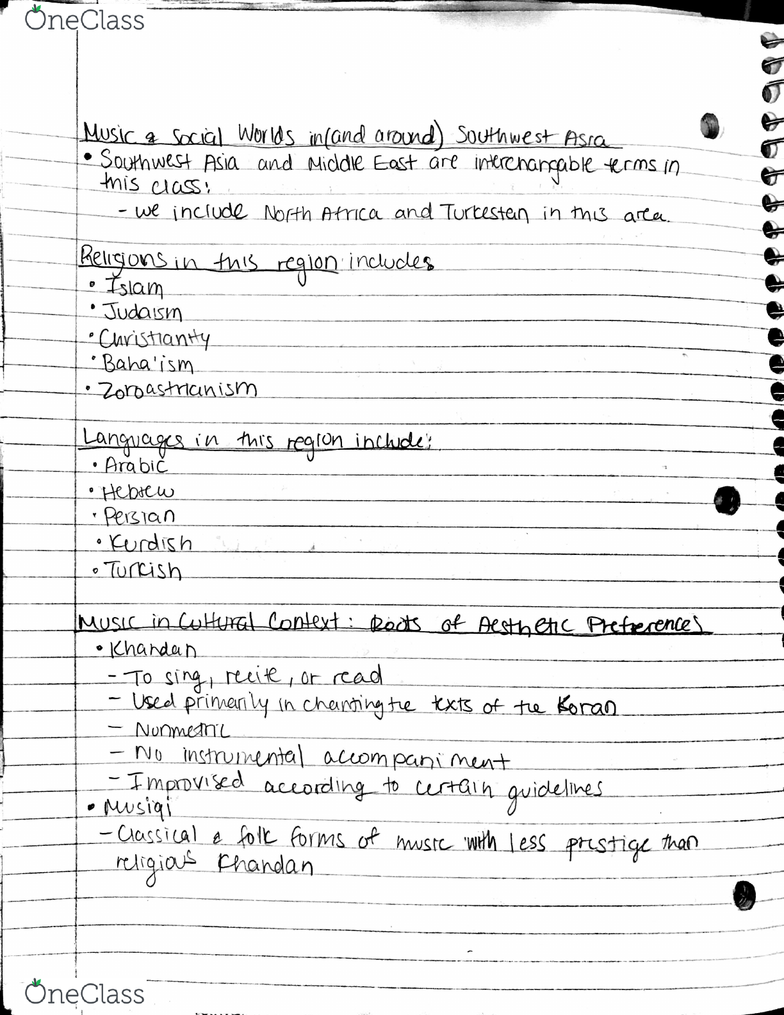 OneClass
Music & Social Worlds in (and around) Southwest Asia
• Southwest Asia and Middle East are interchangable terms in
this class:
- we include North Africa and Turkestan in this area.
Religions in this region includes
• Islam
• Judaism
• Christianity
• Baha'ism
• Zoroastrianism
Languages in this region include:
• Arabic
• Hebrew
• Persian
• Kurdish
• Turkish
Music in Cultural Context: Roots of Aesthetic Preferences
• Khandan
- To sing, recite, or read
- Used primarily in chanting the texts of the Koran
- Nonmetric
- No instrumental accompaniment
- Improvised according to certain guidelines
• Musiqi
- Classical & folk forms of music with less prestige than
religious Khandan
OneClass